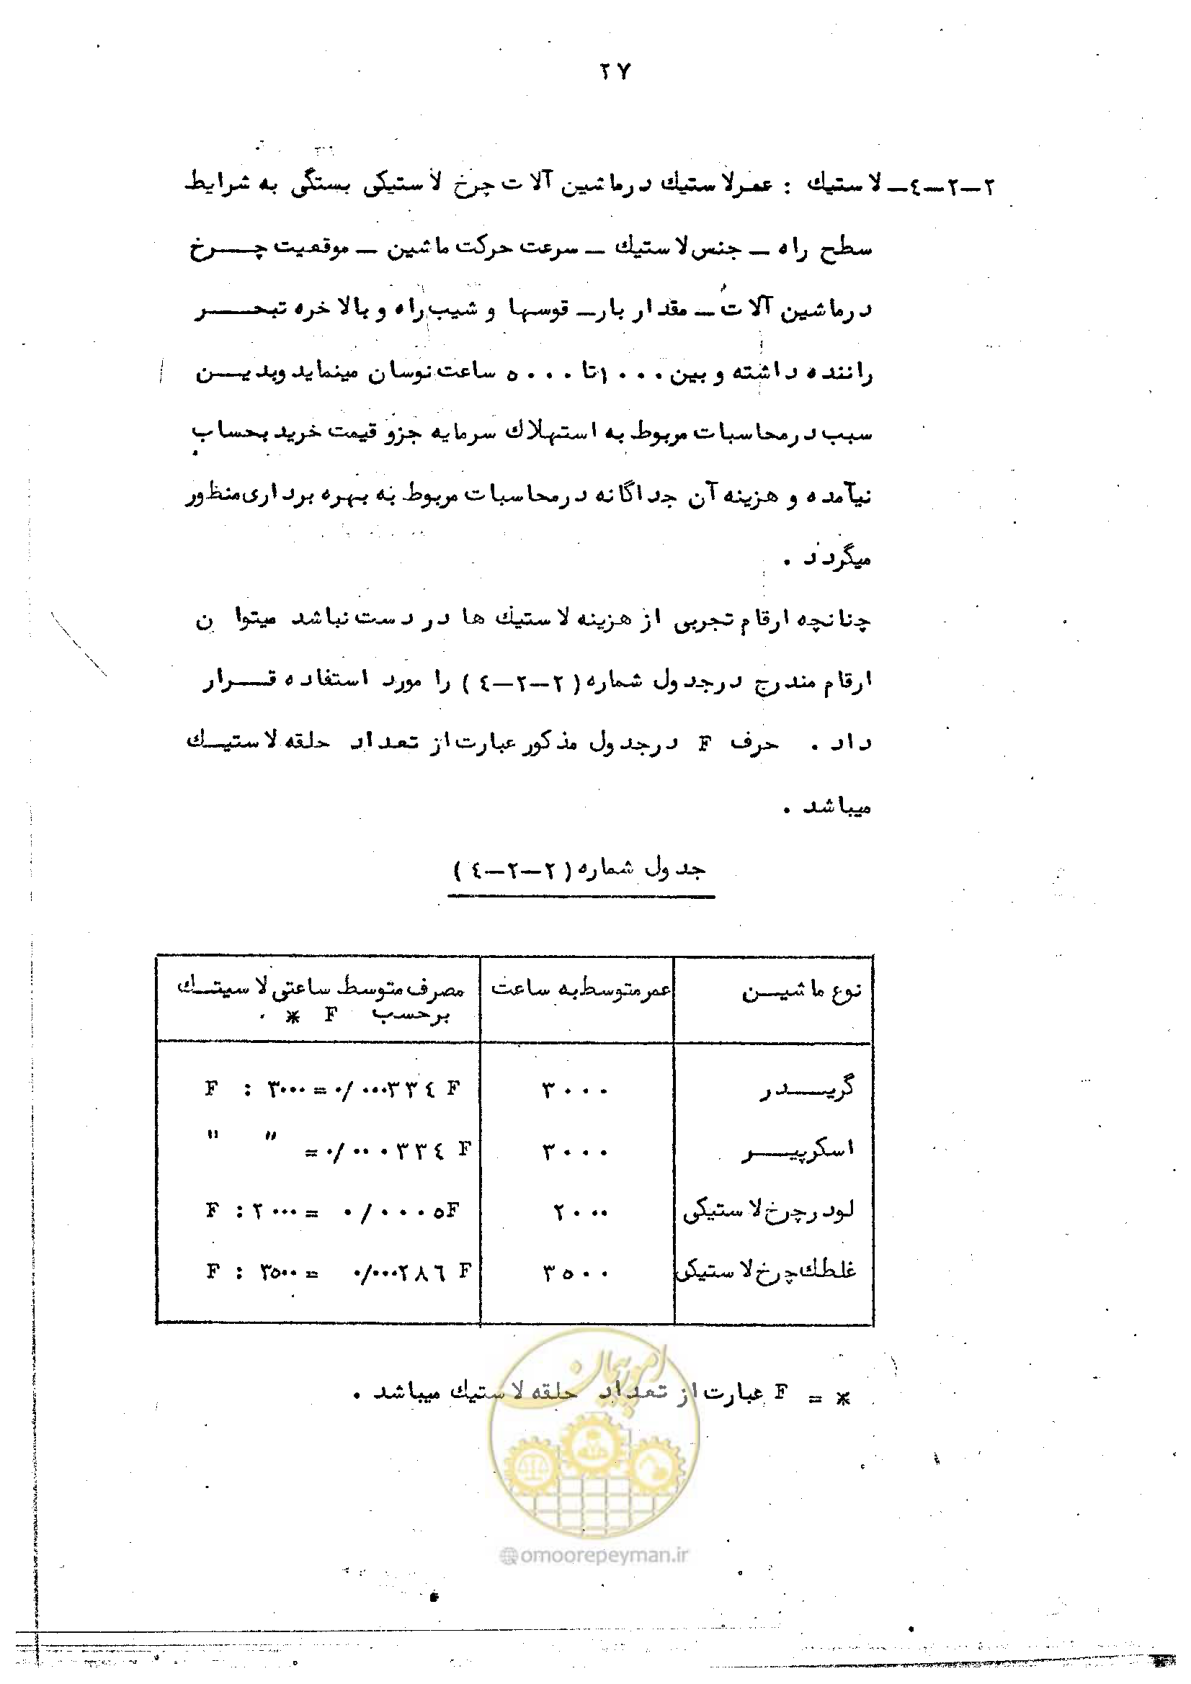 ۲۷
۲-۲-٤- لاستیك : عمر لاستیك در ماشین آلات چرخ لاستیكی بستگی به شرایط
سطح راه - جنس لاستیك - سرعت حركت ماشین - موقعیت چرخ
در ماشین آلات - مقدار بار - قوسها و شیب راه و بالاخره تبحر
راننده داشته و بین ۱۰۰۰ تا ۵۰۰۰ ساعت نوسان مینماید و بدین
سبب در محاسبات مربوط به استهلاك سرمایه جزو قیمت خرید بحساب
نیآمده و هزینه آن جداگانه در محاسبات مربوط به بهره برداری منظور
میگردد .
چنانچه ارقام تجربی از هزینه لاستیك ها در دست نباشد میتوان
ارقام مندرج در جدول شماره ( ۲-۲-٤ ) را مورد استفاده قرار
داد . حرف F در جدول مذكور عبارت از تعداد حلقه لاستیك
میباشد .
جدول شماره ( ۲-۲-٤ )
نوع ماشین عمر متوسط به ساعت مصرف متوسط ساعتی لاسیتك
برحسب F *
گریدر ۳۰۰۰ F : ۳۰۰۰ = ۰/۰۰۰۳۳٤ F
اسكرپیر ۳۰۰۰ " " = ۰/۰۰۰۳۳٤ F
لودر چرخ لاستیكی ۲۰۰۰ F : ۲۰۰۰ = ۰/۰۰۰۵ F
غلطك چرخ لاستیكی ۳۵۰۰ F : ۳۵۰۰ = ۰/۰۰۰۲۸٦ F
* = F عبارت از تعداد حلقه لاستیك میباشد .
امور پیمان
@omoorepeyman.ir